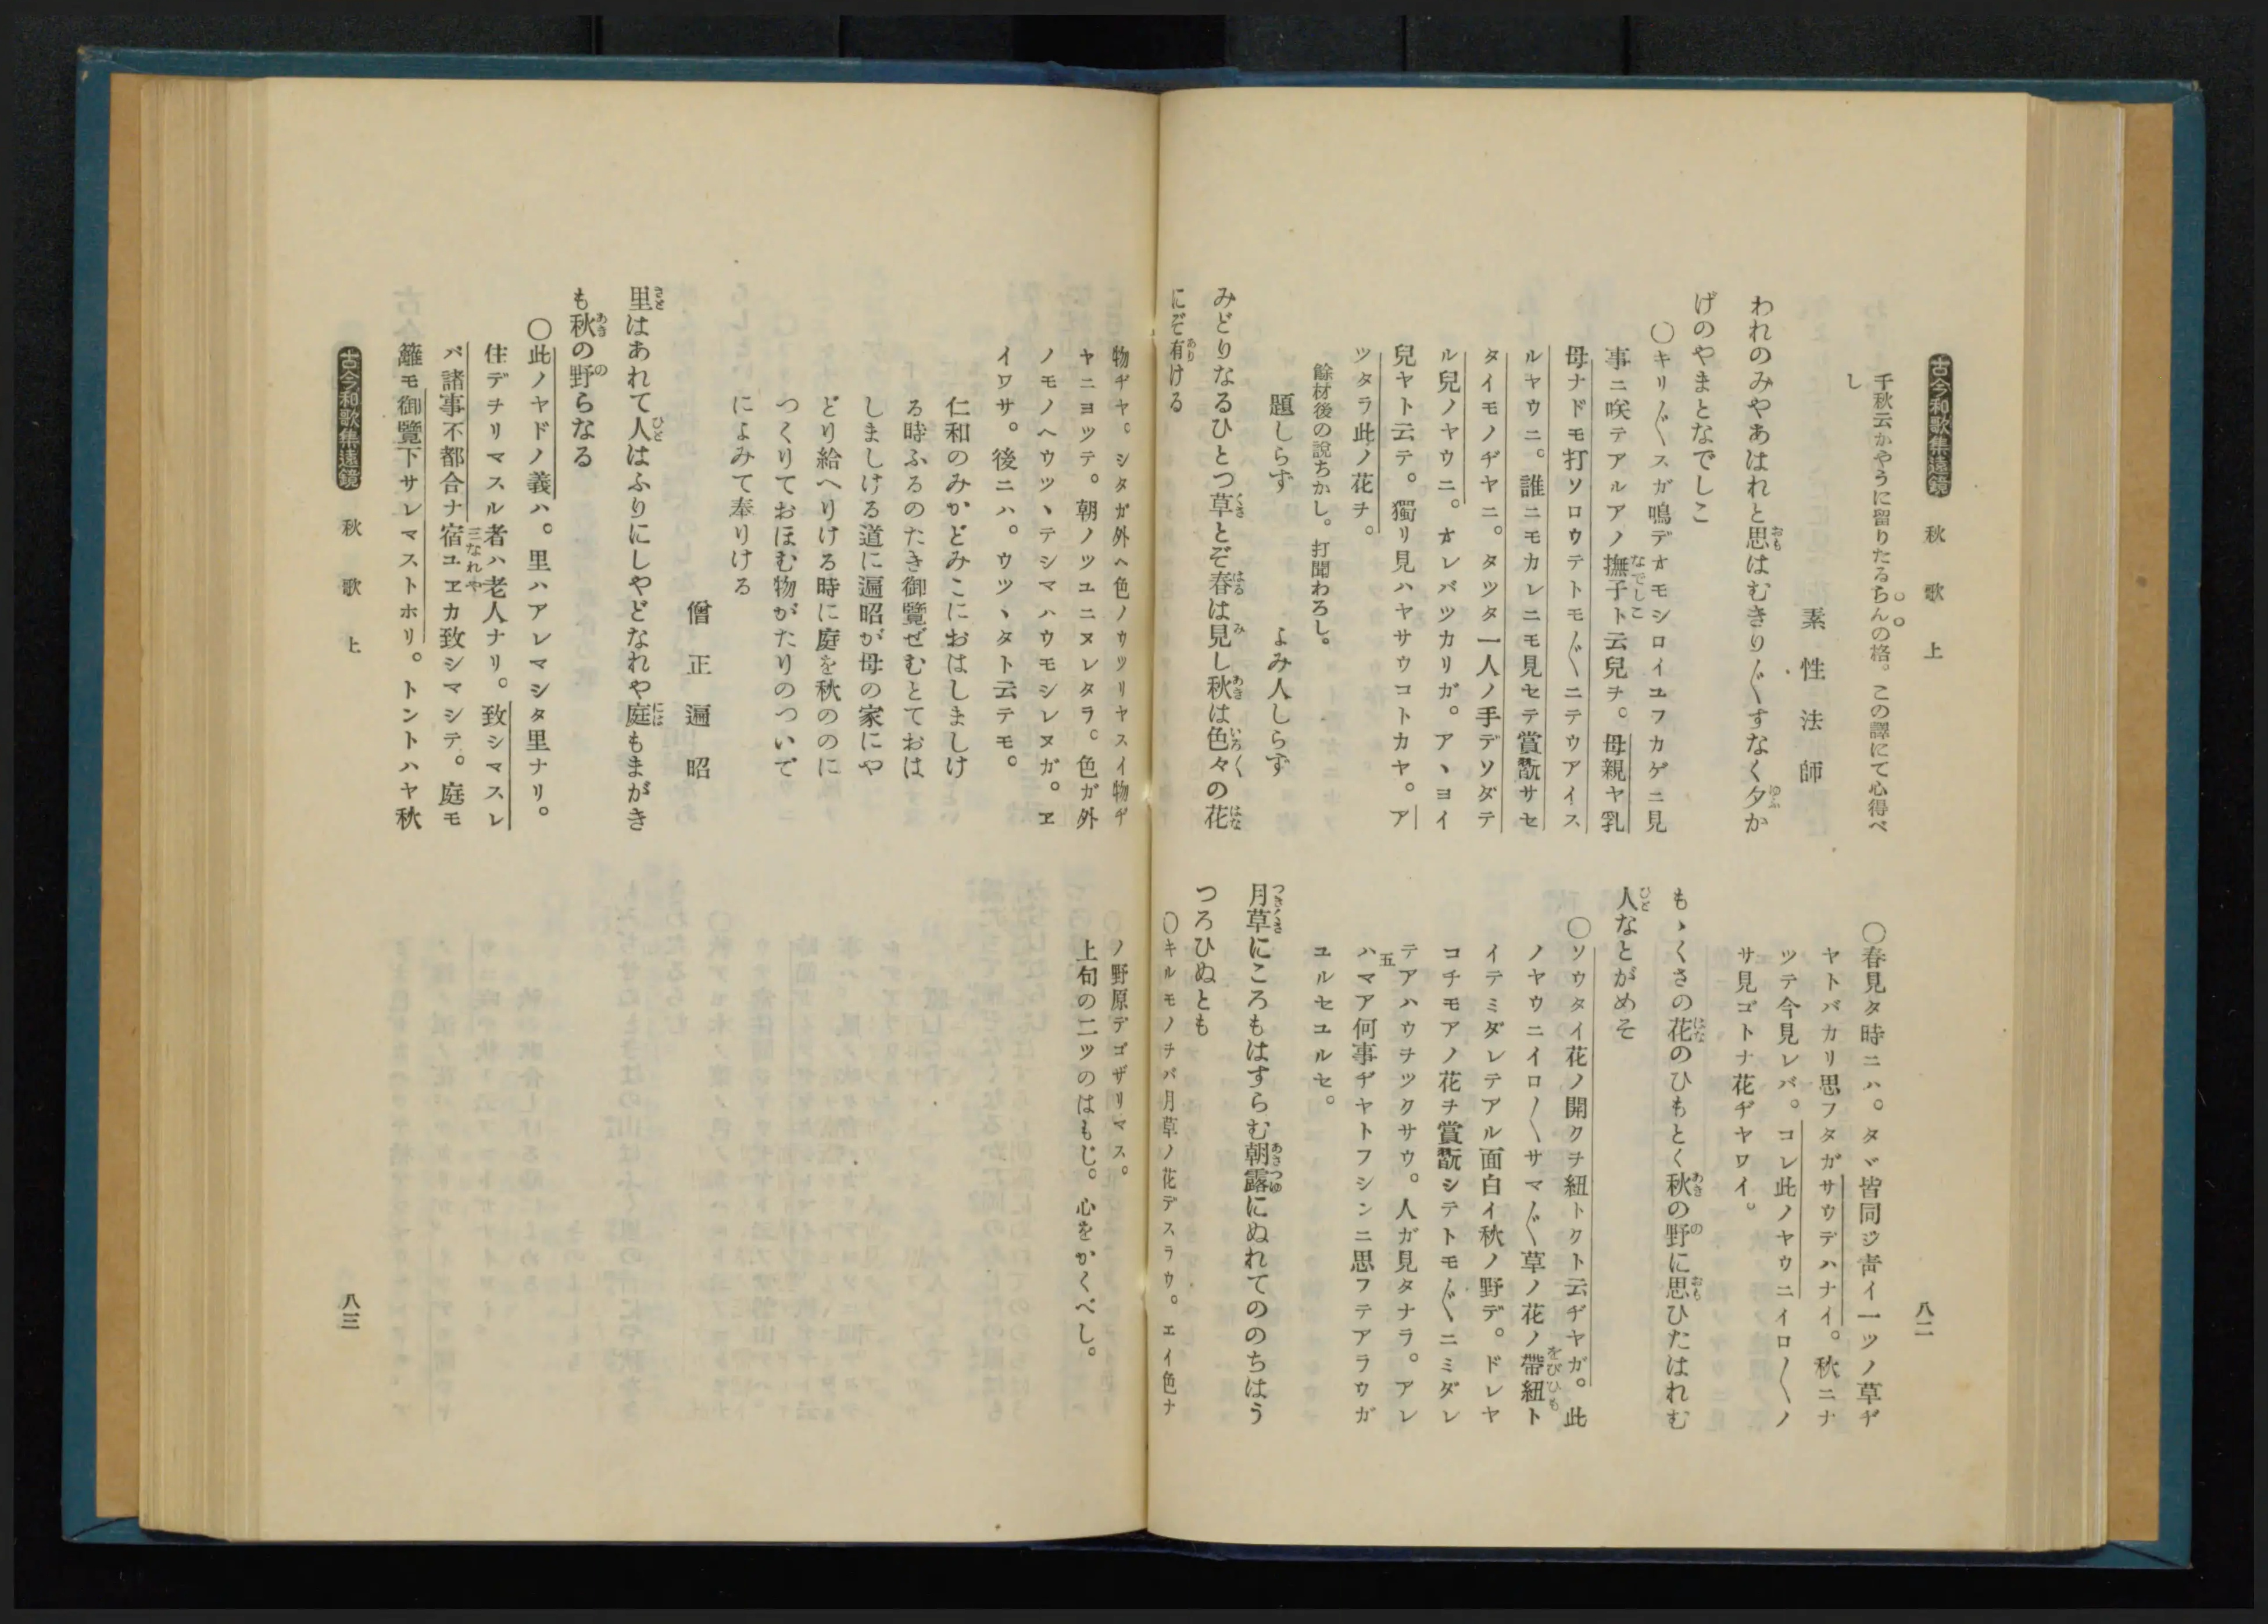 古今和歌集遠鏡　秋歌上　八二
千秋云かやうに留りたるらんの格。この譯にて心得べ
し
素性法師
われのみやあはれと思はむきり〴〵すなく夕か
げのやまとなでしこ
〇キリ〴〵スガ鳴デオモシロイユフカゲニ見
事ニ咲テアルアノ撫子ト云兒ヲ。母親ヤ乳
母ナドモ打ソロウテトモ〴〵ニテウアイス
ルヤウニ。誰ニモカレニモ見セテ賞翫サセ
タイモノヂヤニ。タツタ一人ノ手デソダテ
ル兒ノヤウニ。オレバツカリガ。アヽヨイ
兒ヤト云テ。獨リ見ハヤサウコトカヤ。ア
ツタラ此ノ花ヲ。
餘材後の説ちかし。打聞わろし。
題しらず　よみ人しらず
みどりなるひとつ草とぞ春は見し秋は色々の花
にぞ有ける
〇春見タ時ニハ。タヾ皆同ジ靑イ一ツノ草ヂ
ヤトバカリ思フタガサウデハナイ。秋ニナ
ツテ今見レバ。コレ此ノヤウニイロ〳〵ノ
サ見ゴトナ花ヂヤワイ。
もヽくさの花のひもとく秋の野に思ひたはれむ
人なとがめそ
〇ソウタイ花ノ開クヲ紐トクト云ヂヤガ。此
ノヤウニイロ〳〵サマ〴〵草ノ花ノ帶紐ト
イテミダレテアル面白イ秋ノ野デ。ドレヤ
コチモアノ花ヲ賞翫シテトモ〴〵ニミダレ
テアハウヲツクサウ。人ガ見タナラ。アレ
ハマア何事ヂヤトフシンニ思フテアラウガ
ユルセユルセ。
月草にころもはすらむ朝露にぬれてののちはう
つろひぬとも
〇キルモノヲバ月草ノ花デスラウ。エイ色ナ
物ヂヤ。シタガ外ヘ色ノウツリヤスイ物ヂ
ヤニヨツテ。朝ノツユニヌレタラ。色ガ外
ノモノヘウツヽテシマハウモシレヌガ。ヱ
イワサ。後ニハ。ウツヽタト云テモ。
仁和のみかどみこにおはしましけ
る時ふるのたき御覽ぜむとておは
しましける道に遍昭が母の家にや
どり給へりける時に庭を秋ののに
つくりておほむ物がたりのついで
によみて奉りける
僧正遍昭
里はあれて人はふりにしやどなれや庭もまがき
も秋の野らなる
〇此ノヤドノ義ハ。里ハアレマシタ里ナリ。
住デヲリマスル者ハ老人ナリ。致シマスレ
バ諸事不都合ナ宿ユヱカ致シマシテ。庭モ
籬モ御覽下サレマストホリ。トントハヤ秋
ノ野原デゴザリマス。
上句の二ツのはもじ。心をかくべし。
古今和歌集遠鏡　秋歌上　八三